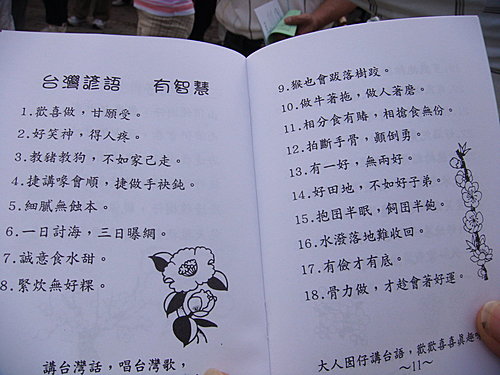 台灣諺語 有智慧
1.歡喜做，甘願受。
2.好笑神，得人疼。
3.教豬教狗，不如家己走。
4.捷講喙會順，捷做手袂鈍。
5.細膩無蝕本。
6.一日討海，三日曝網。
7.誠意食水甜。
8.緊炊無好粿。
講台灣話，唱台灣歌，
9.猴也會跋落樹跤。
10.做牛著拖，做人著磨。
11.相分食有賰，相搶食無份。
12.拍斷手骨，顛倒勇。
13.有一好，無兩好。
14.好田地，不如好子弟。
15.抱囝半眠，飼囝半飽。
16.水潑落地難收回。
17.有儉才有底。
18.骨力做，才趁會著好運。
大人囡仔講台語，歡歡喜喜真趣味
～11～